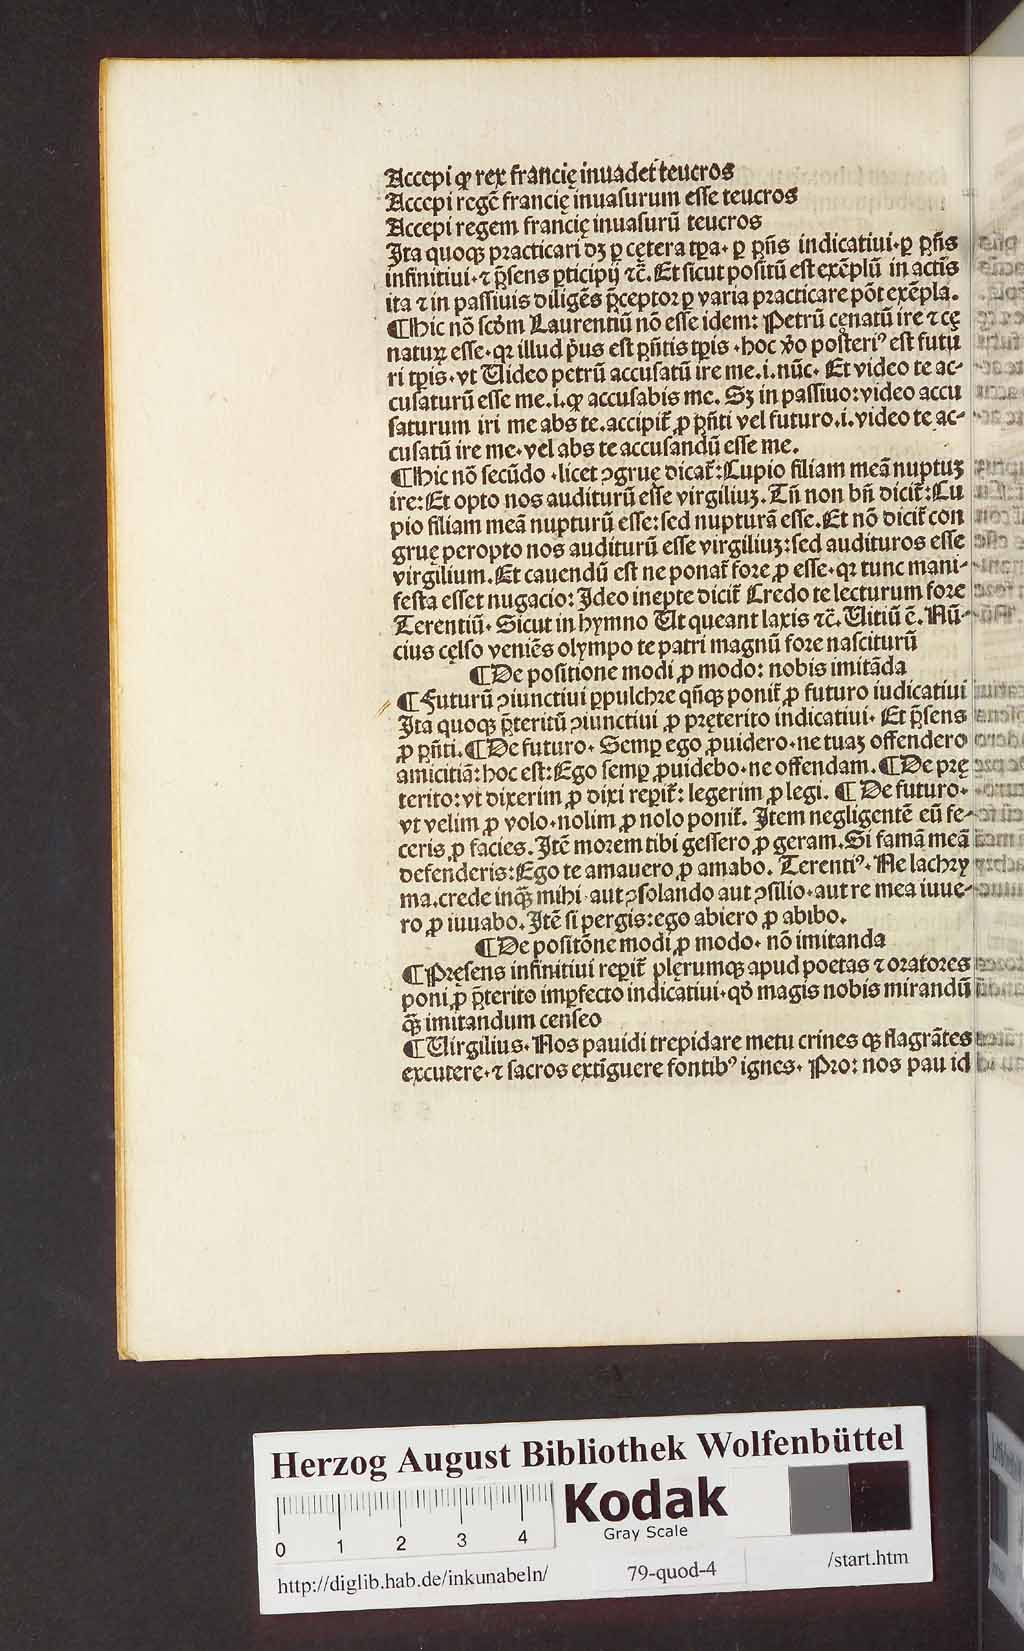 Accepi ꝙ rex francię inuadet teucros
Accepi regẽ francię inuasurum esse teucros
Accepi regem francię inuasurũ teucros
Ita quoqꝫ practicari dꝫ ꝑ cętera tꝑa. ꝑ p̃ñs indicatiui. ꝑ p̃ñs
infinitiui. ⁊ p̃sens ꝑticipij ⁊c̃. Et sicut positũ est exẽplũ in actĩs
ita ⁊ in passiuis diligẽs p̃ceptor ꝑ varia practicare põt exẽpla.
¶ Hic nõ scd̓m Laurentiũ nõ esse idem: Petrũ cęnatũ ire ⁊ cę
naturꝫ esse. qꝛ illud p̓us est p̃ñtis tꝑis. hoc v̓o posteriꝰ est futu
ri tꝑis. vt Uideo petrũ accusatũ ire me. i. nũc. Et video te ac-
cusaturũ esse me. i. ꝙ accusabis me. Sꝫ in passiuo: video accu
saturum iri me abs te. accipit̃ ꝓ p̃ñti vel futuro. i. video te ac-
cusatũ ire me. vel abs te accusandũ esse me.
¶ Hic nõ secũdo. licet ꝯgruę dicat̃: Cupio filiam meã nuptuꝫ
ire: Et opto nos auditurũ esse virgiliuꝫ. Tñ non bñ dicit̃: Cu
pio filiam meã nupturũ esse: sed nupturã esse. Et nõ dicit̃ con
gruę peropto nos auditurũ esse virgiliuꝫ: sed audituros esse
virgilium. Et cauendũ est ne ponat̃ fore ꝓ esse. qꝛ tunc mani-
festa esset nugacio: Ideo inepte dicit̃ Credo te lecturum fore
Terentiũ. Sicut in hymno Ut queant laxis ⁊c̃. Uitiũ ẽ. Nũ-
cius cęlso veniẽs olympo te patri magnũ fore nasciturũ
¶ De positione modi ꝓ modo: nobis imitãda
¶ Futurũ ꝯiunctiui ꝑpulchre qñqꝫ ponit̃ ꝓ futuro iudicatiui
Ita quoqꝫ p̃teritũ ꝯiunctiui ꝓ pręterito indicatiui. Et p̃sens
ꝓ p̃ñti. ¶ De futuro. Semꝑ ego ꝓuidero. ne tuaꝫ offendero
amicitiã: hoc est: Ego semꝑ ꝓuidebo. ne offendam. ¶ De prę
terito: vt dixerim ꝓ dixi reꝑit̃: legerim ꝓ legi. ¶ De futuro.
vt velim ꝓ volo. nolim ꝓ nolo ponit̃. Item negligentẽ eũ fe-
ceris ꝓ facies. Itẽ morem tibi gessero ꝓ geram. Si famã meã
defenderis: Ego te amauero ꝓ amabo. Terentiꝰ. Ne lachry
ma. crede inqꝫ̃ mihi. aut ꝯsolando aut ꝯsilio. aut re mea iuue-
ro ꝓ iuuabo. Itẽ si pergis: ego abiero ꝓ abibo.
¶ De positõne modi ꝓ modo. nõ imitanda
¶ Pręsens infinitiui reꝑit̃ plęrumqꝫ apud poetas ⁊ oratores
poni ꝓ p̃terito imꝑfecto indicatiui. qd̓ magis nobis mirandũ
qꝫ̃ imitandum censeo
¶ Uirgilius. Nos pauidi trepidare metu crines qꝫ flagrãtes
excutere. ⁊ sacros extĩguere fontibꝰ ignes. Pro: nos pau id
Herzog August Bibliothek Wolfenbüttel
0 1 2 3 4
Kodak
Gray Scale
http://diglib.hab.de/inkunabeln/ 79-quod-4 /start.htm